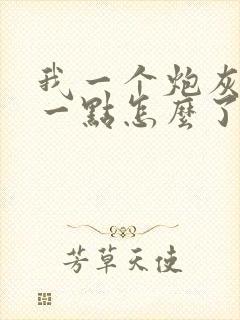 我一个炮灰
一點怎麼了
芳草天使